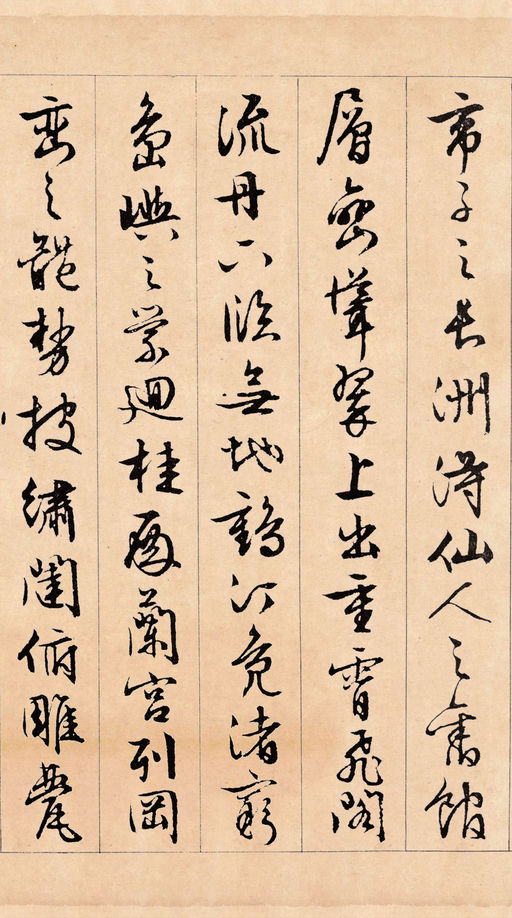 帝子之長洲得仙人之舊館
層巒聳翠上出重霄飛閣
流丹下臨無地鶴汀鳧渚窮
島嶼之縈迴桂殿蘭宮列岡
巒之體勢披繡闥俯雕甍